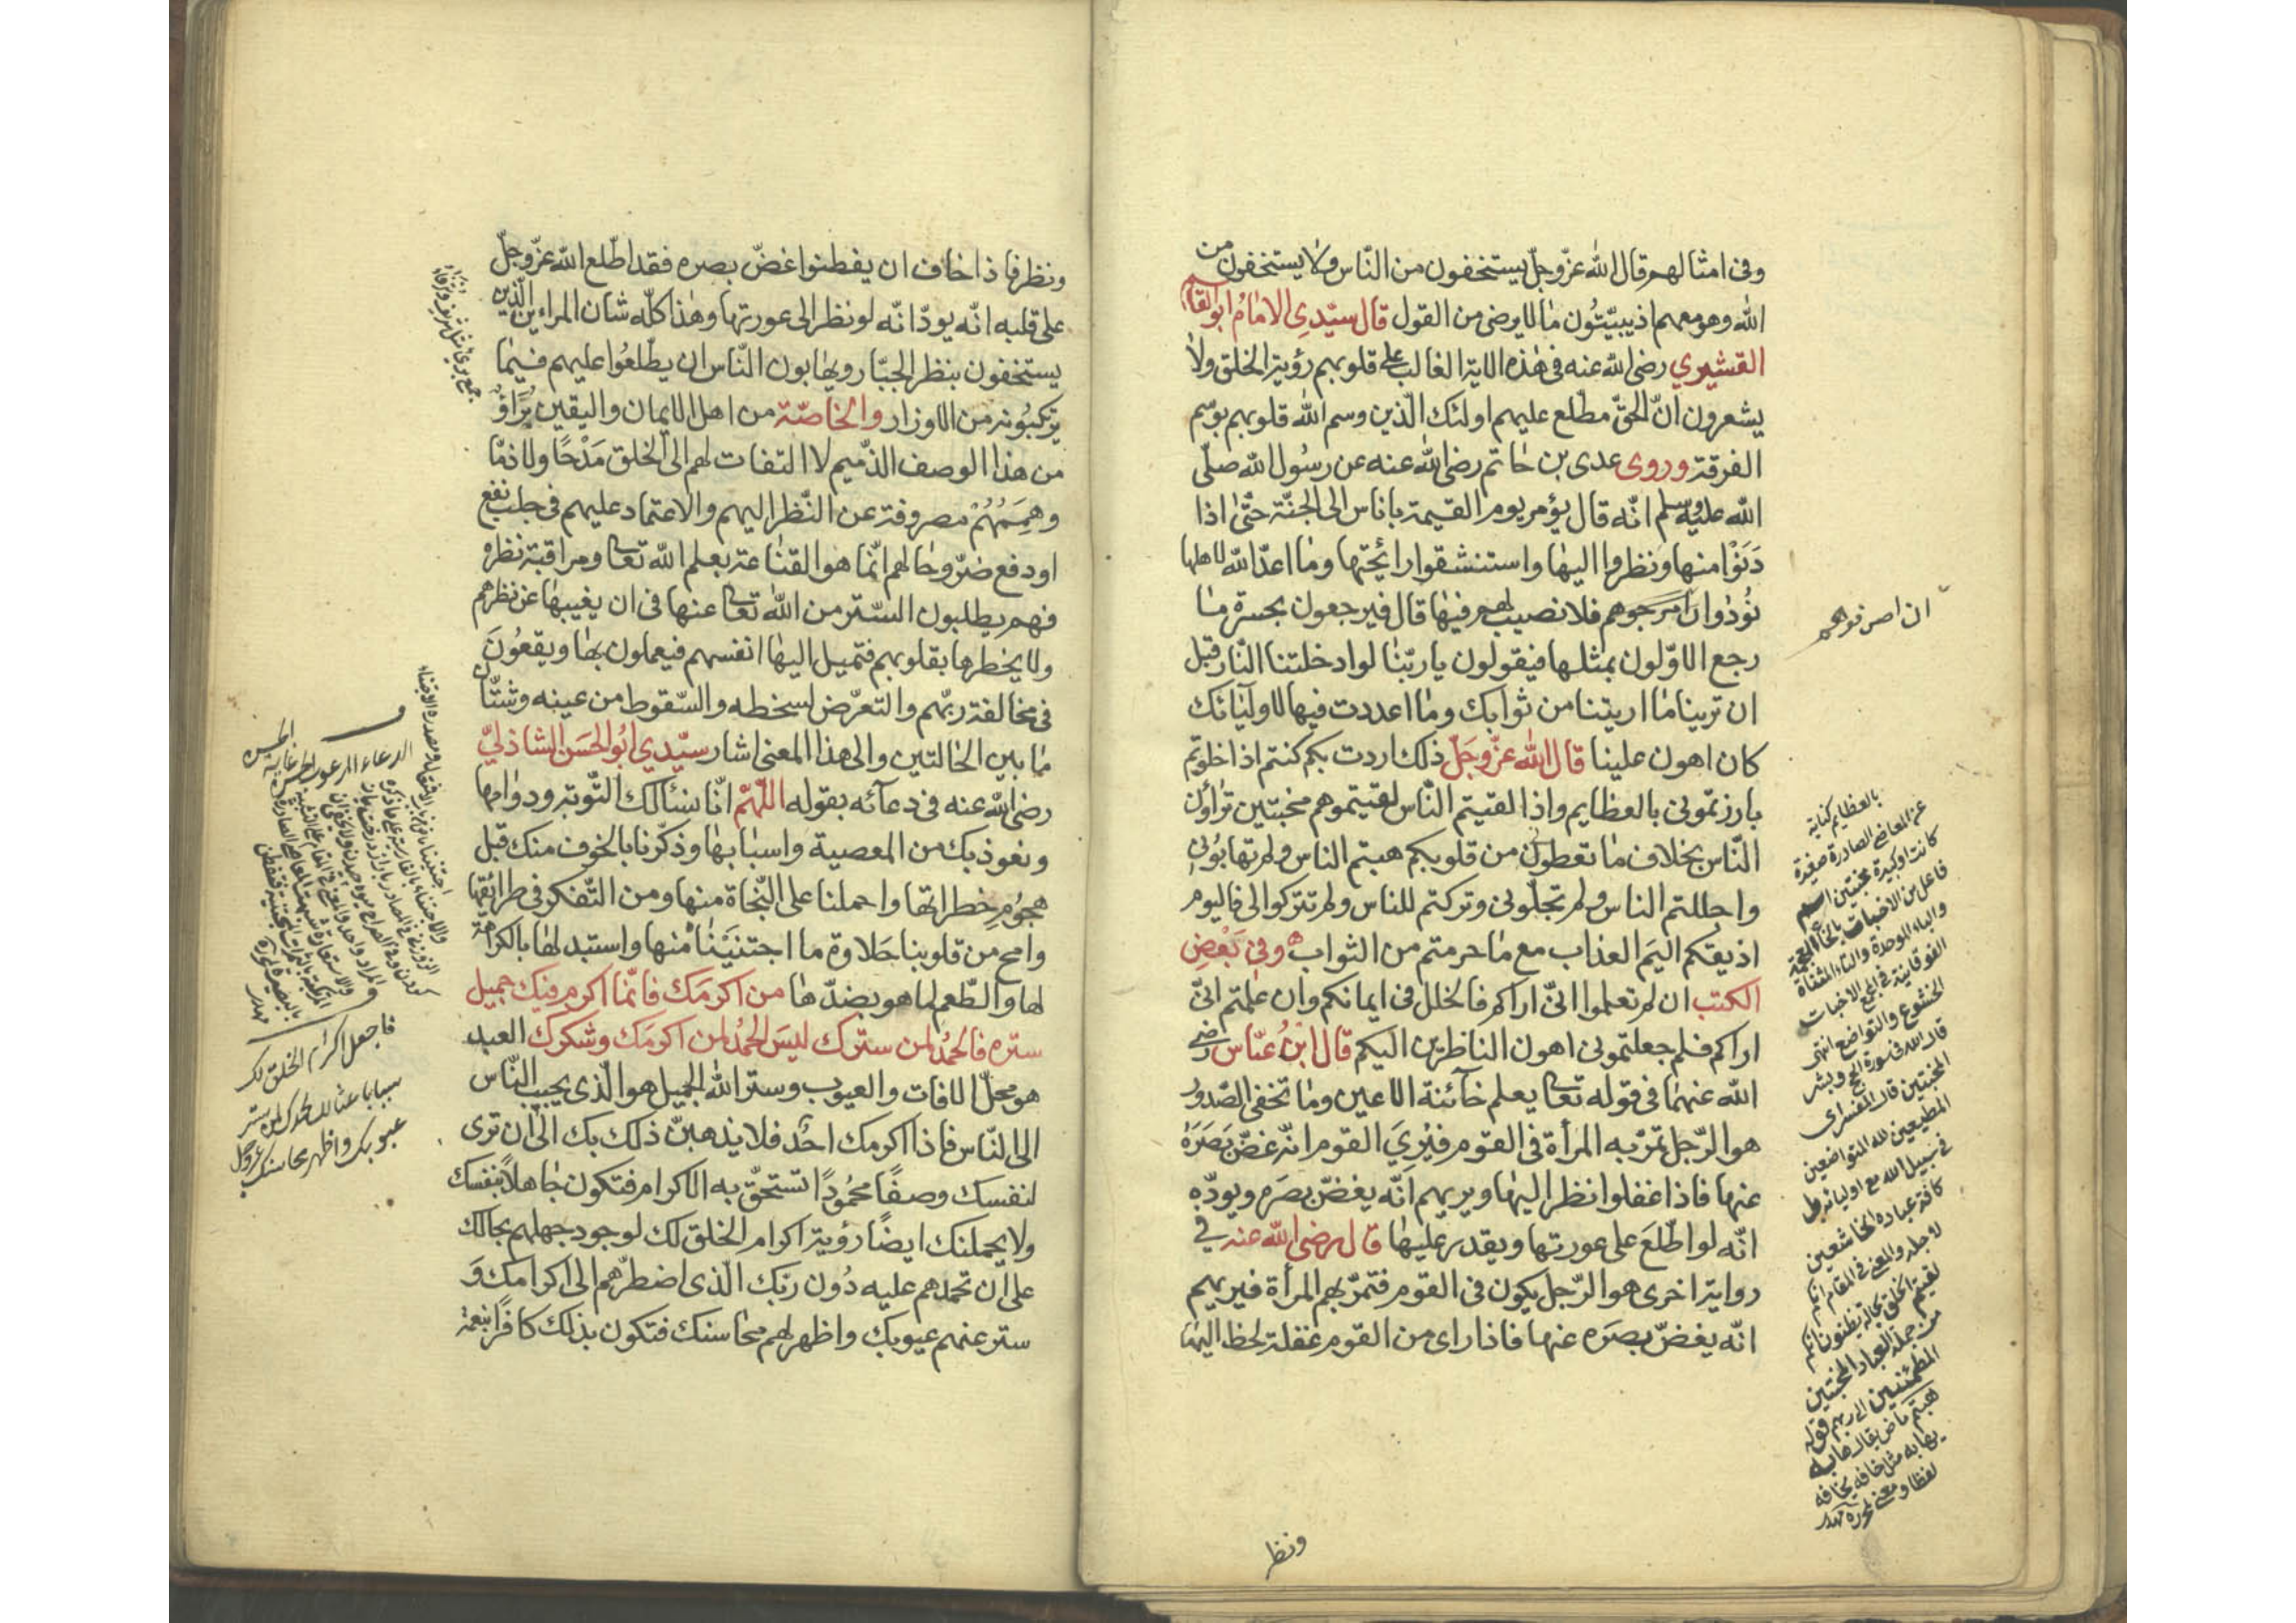 وفى امثالهم قال الله عزّ وجلّ يستخفون من النّاس ولا يستخفون من
الله وهو معهم اذ يبيّتُون ما لا يرضى من القول قال سيّدى الامامُ ابو القاسم
القشيري رضى الله عنه فى هذه الاية الغالب على قلوبهم رؤية الخلق ولا
يشعرون انّ الحقّ مطّلع عليهم اولئك الّذين وسم الله قلوبهم بوسم
الفرقة وروى عدى بن حاتم رضى الله عنه عن رسُول الله صلّى
الله عليه وسلم انّه قال يؤمر يوم القيمة باناس الى الجنّة حتّى اذا
دَنَوْا منها ونظروا اليها واستنشقوا رائحتها وما اعدّ الله لاهلها
نُودُوا ان اصرفوهم فلا نصيب لهم فيها قال فيرجعون بحسرة ما
رجع الاوّلون بمثلها فيقولون يا ربّنا لو ادخلتنا النّار قبل
ان ترينا ما اريتنا من ثوابك وما اعددت فيها لاوليائك
كان اهون علينا قال الله عزّ وجلّ ذلك اردت بكم كنتم اذا خلوتم
بارزتمونى بالعظايم واذا لقيتم النّاس لقيتموهم مخبتين تراؤن
النّاس بخلاف ما تعطون من قلوبكم هبتم الناس ولم تهابُونى
واجللتم الناس ولم تجلّونى وتركتم للناس ولم تتركوا لى فاليوم
اذيقكم اليَم العذاب مع ما حرمتم من الثواب وفى بَعْضِ
الكتب ان لم تعلموا انّى اراكم فالخلل فى ايمانكم وان علمتم انّى
اراكم فلم جعلتمونى اهون الناظرين اليكم قال ابنُ عبّاس رضى
الله عنهما فى قوله تعالى يعلم خائنة الاعين وما تخفى الصّدور
هو الرّجل تمرّ به المرأة فى القوم فيُرِيَ القوم انّه غضّ بَصَرَهُ
عنها فاذا غفلوا نظر اليها ويريهم انّه يغضّ بصَره ويودّ به
انّه لو اطّلعَ على عورتها ويقدر عليها قال رضى الله عنه في
رواية اخرى هو الرّجل يكون فى القوم فتمرّ بهم المرأة فيريهم
انّه يغضّ بصَره عنها فاذا راى من القوم غفلة لحظ اليها
ونظر
ان اصرفوهم
بالعظايم كناية
عن المعاصى الصادرة صغيرة
كانت او كبيرة مخبتين اسم
فاعل من الاخبات بالخاء المعجمة
والباء الموحدة والتاء المثناة
الفوقانية الاخبات
الخشوع والتواضع انتهى
قال الله فى سورة الحج وبشر
المخبتين قال المفسر اى
المطيعين لله المتواضعين
فى سبيل الله مع اوليائه
كافة عباده الخاشعين
لاجله والمعنى فى المقام انكم
لقيتم الخلق بحالة يظنون انكم
من جملة العباد المخبتين
المطمئنين الى ربهم قوله
هبتم ماض يقال هابه
يهابه مثل خافه يخافه
لفظا ومعنى
ونظر فاذا خاف ان يفطنوا غضّ بصره فقد اطّلع الله عزّ وجلّ
على قلبه انّه يودّ انّه لو نظر الى عورتها وهذا كلّه شان المراءين الّذين
يستخفون بنظر الجبّار ويهابون النّاس ان يطّلعُوا عليهم فيما
يرتكبُونه من الاوزار والخاصّة من اهل الايمان واليقين بُرَاؤٌ
من هذا الوصف الذّميم لا التفات لهم الى الخلق مَدْحًا ولا ذمّا
وهِمَمُهُمْ مصروفة عن النّظر اليهم والاعتماد عليهم فى جلب نفع
او دفع ضرّ وحالهم انّما هو القناعة بعلم الله تعالى ومراقبة نظره
فهم يطلبون السّتر من الله تعالى عنها فى ان يغيبها عن نظرهم
ولا يخطرها بقلوبهم فتميل اليها انفسهم فيعملون بها ويقعُونَ
فى مخالفة ربّهم والتعرّض لسخطه والسّقوط من عينه وشتّان
ما بين الحالتين والى هذا المعنى اشار سيّدي ابُو الحَسَن الشاذليّ
رضى الله عنه فى دعائه بقوله اللّهُمّ انّا نسئالك التّوبة ودوامها
ونعوذ بك من المعصية واسبابها وذكّرنا بالخوف منك قبل
هجُومِ خطراتها واحملنا على النّجاة منها ومن التّفكر فى طرائقها
وامح من قلوبنا حَلاوة ما اجتنَيْنَاه منها واستبدلها بالكراهة
لها والطّعم لما هو بضدّها من اكرمَك فانّما اكرم فيك جميل
ستره فالحمْدُ لمن سترك ليسَ الحمْدُ لمن اكرمَك وشكرك العبد
هو محلّ الافات والعيوب وستر الله الجميل هو الّذى يحبب النّاس
الى النّاس فاذا اكرمك احَدٌ فلا يذهبنّ ذلك بك الى ان ترى
لنفسك وصفًا محمُودًا تستحقّ به الاكرام فتكون جاهلاً بنفسك
ولا يحملنك ايضًا رؤية اكرام الخلق لك لوجود جهلهم بحالك
على ان تحمدهم عليه دُون ربّك الّذى اضطرّهم الى اكرامك وَ
ستر عنهم عيوبك واظهر لهم محاسنك فتكون بذلك كافرًا بنعمة
فاجعل اكرام الخلق لك
سببا باعثا لحمدك لمن ستر
عيوبك واظهر محاسنك عزّ وجل